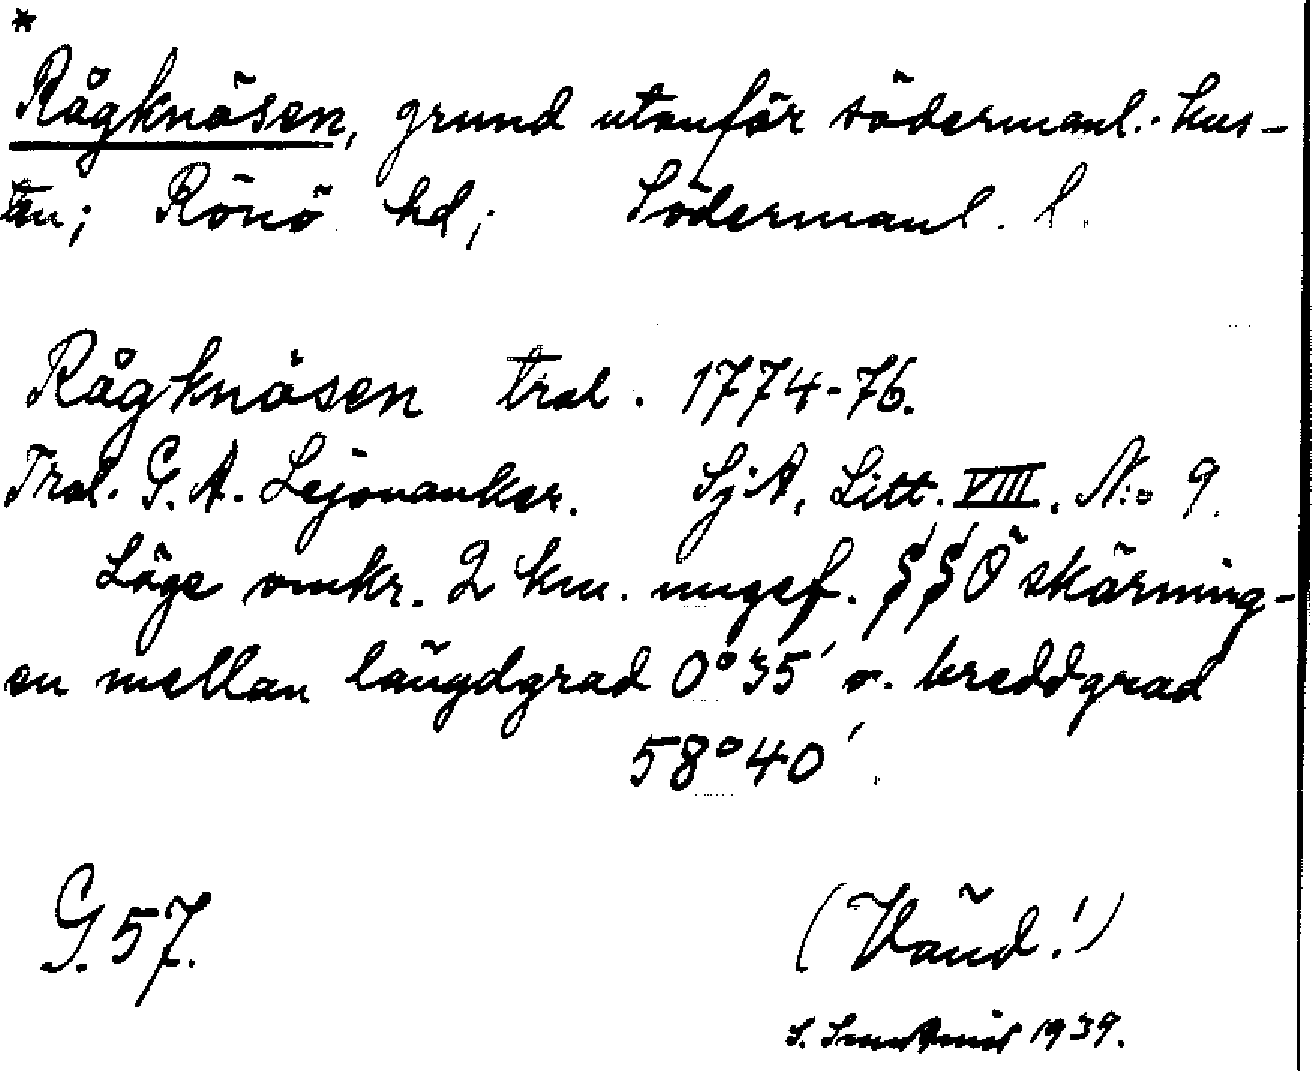 *
Rågknösen, grund utanför södermanl. kus-
tan; Rönö hd; Södermanl. l.
Rågknösen tral. 1774-76.
Tral. G. A. Lejonanker. SjA, Litt. VIII. N:o 9.
Läge omkr. 2 km. ungef. SSÖ skärning-
en mellan längdgrad 0°35′ o. breddgrad
58°40′.
G. 57.
(Vänd!)
S. 1939.